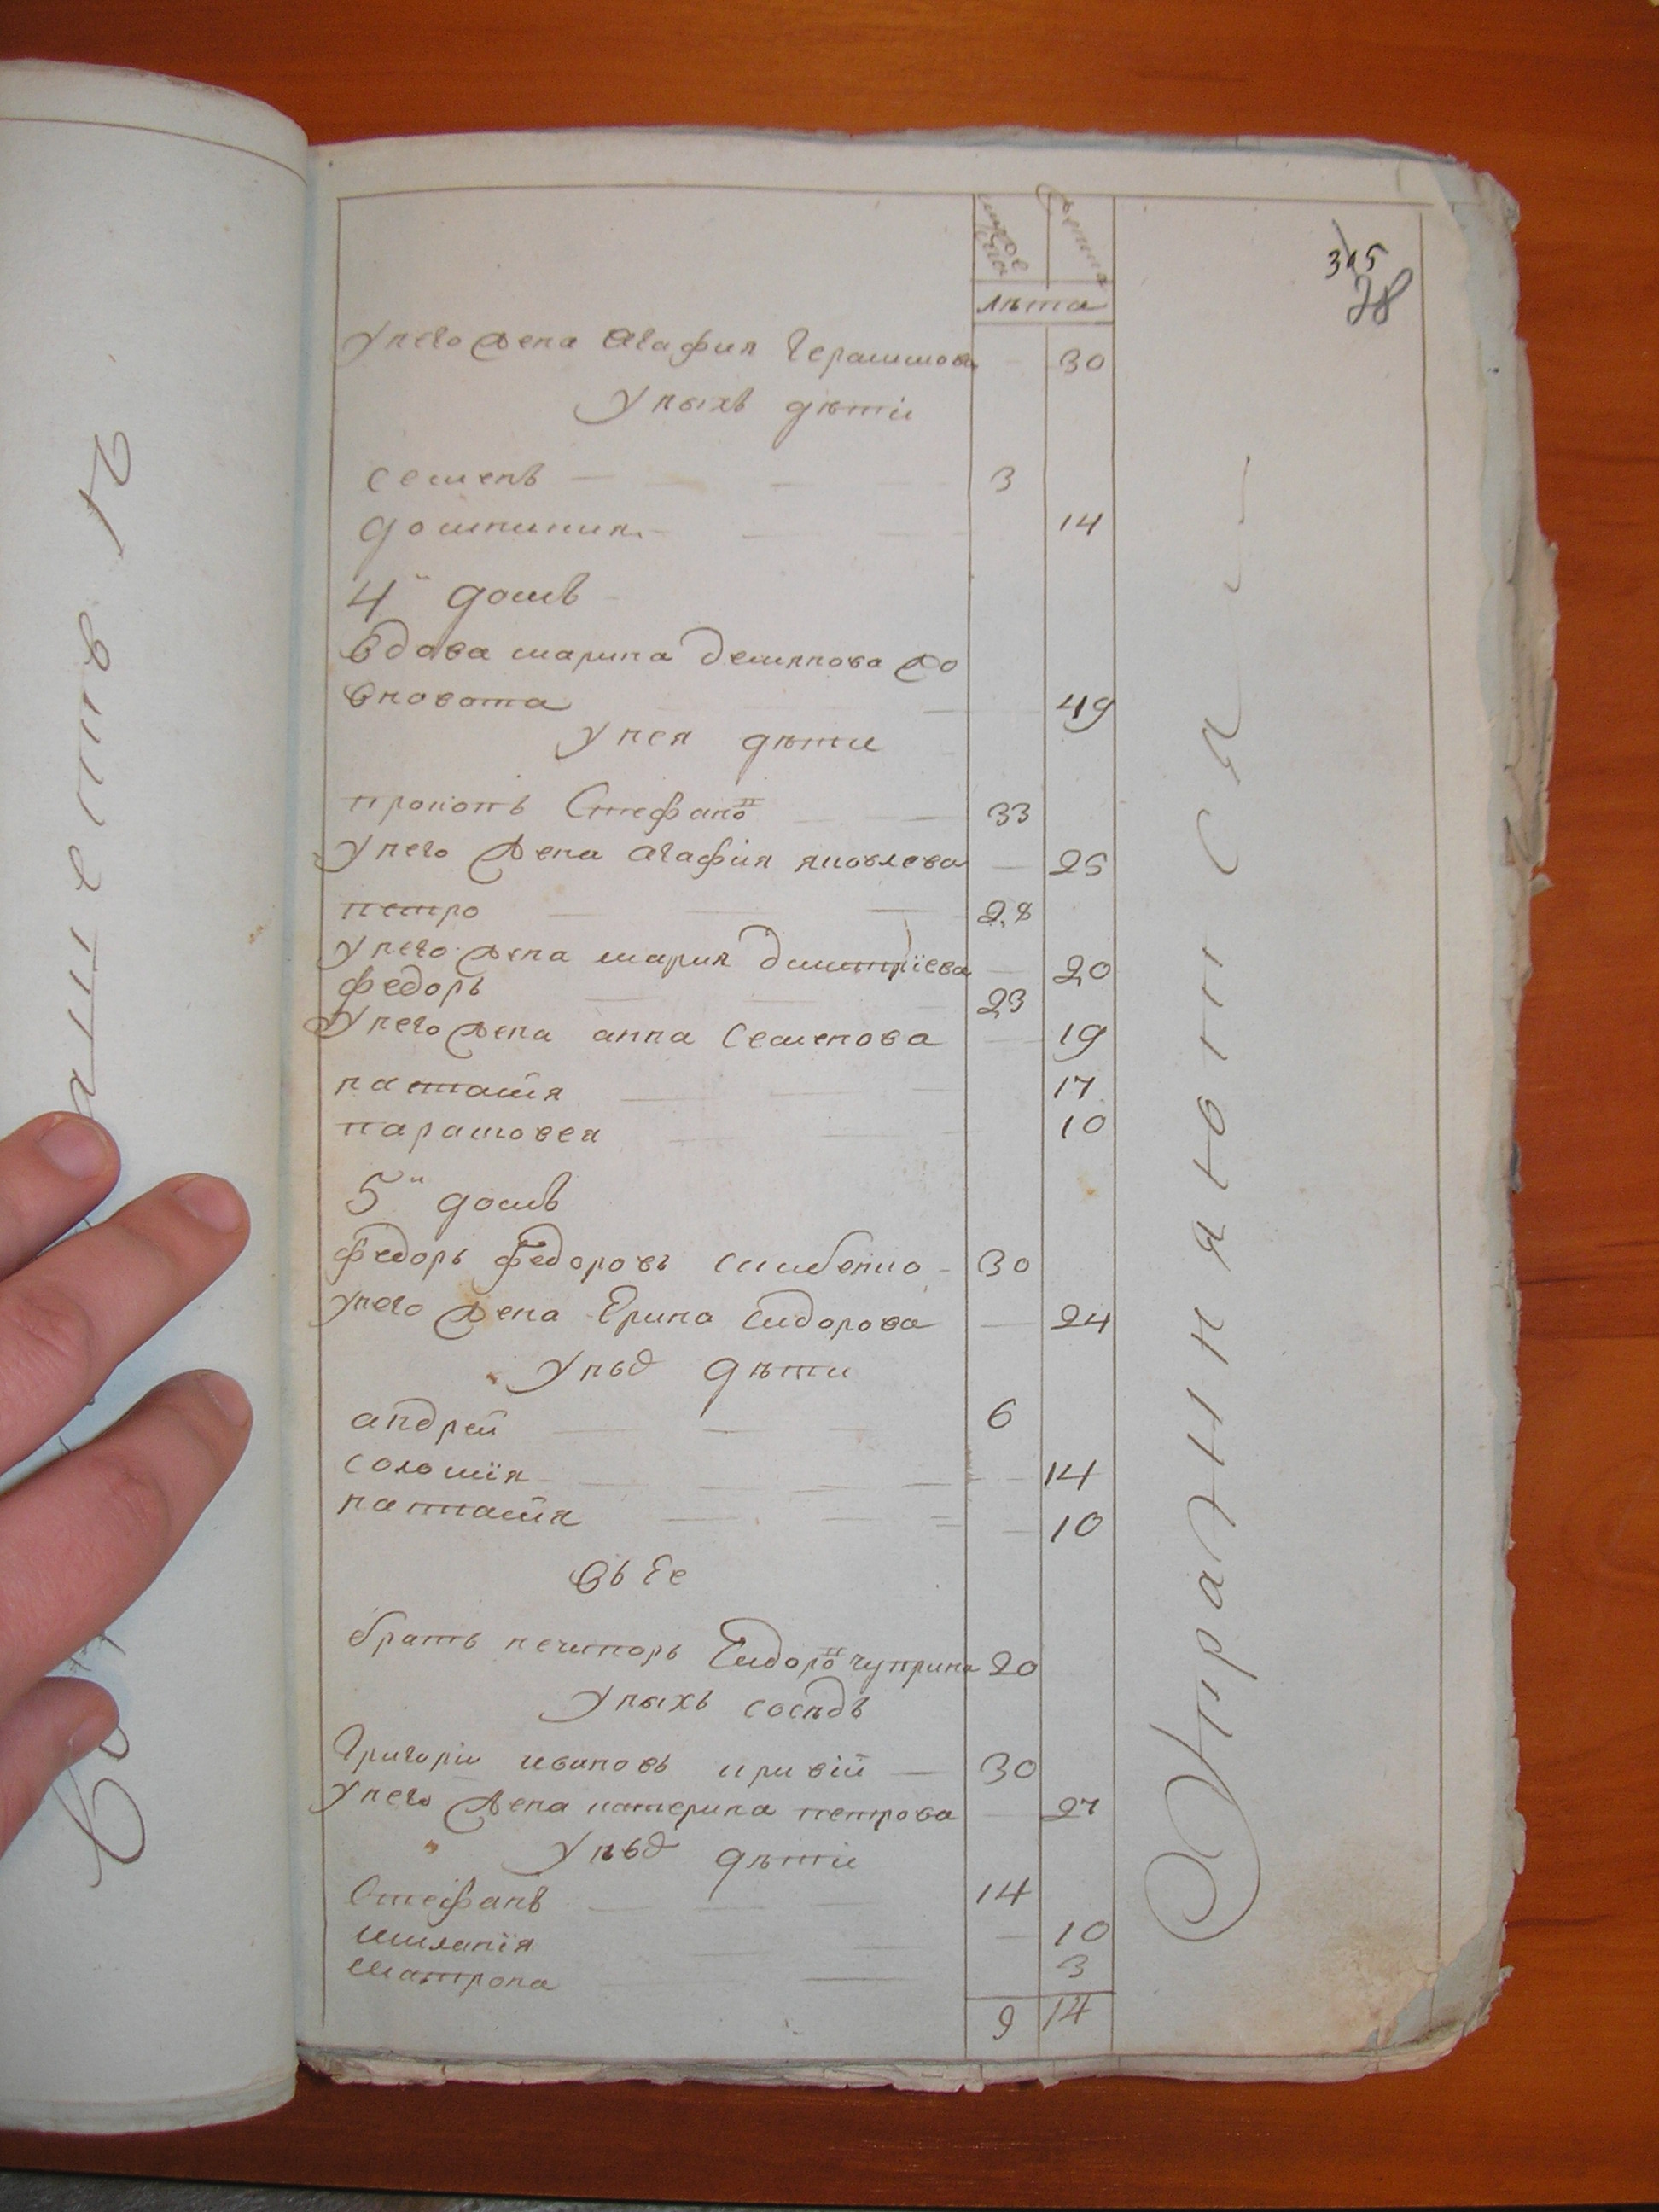 мужеска
женска
лѣта
315
28
У него жена Агафия Герасимова 30
У ныхъ дѣти
Семенъ 3
Домникия 14
4й домъ
Вдова Марина Демянова Жо
вновата 49
У нея дѣти
Прокопъ Стефановъ 33
У него жена Агафія Яковлева 25
Петро 28
У него жена Мария Дмитріева 20
Федоръ 23
У него жена Анна Семенова 19
Наталія 17
Парасковея 10
5й домъ
Федоръ Федоровъ Скибенко 30
У него жена Ерина Сидорова 24
У ныхъ дѣти
Андрей 6
Соломія 14
Наталія 10
Въ Ее
братъ Нечипоръ Сидоровъ Чуприна 20
У ныхъ сосѣдъ
Григорій Ивановъ Кривій 30
У него жена Катерина Петрова 27
У ныхъ дѣти
Стефанъ 14
Миланія 10
Матрона 3
9 14
Упражняютися